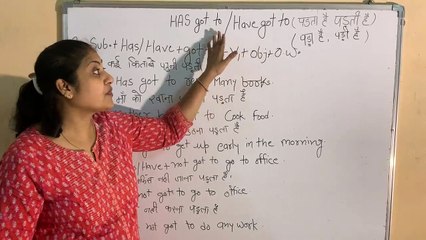 HAS got to / Have got to (पड़ता है पड़ती है)
(पड़ा है, पड़ी है)
Sub. + Has/Have + got + Obj + O.W.
कई किताबें पढ़नी पड़ती
Has got to Many books.
माँ को खाना पड़ता है
to Cook food.
पड़ता है
get up early in the morning.
/Have + not got to go to office
नहीं जाना पड़ता है.
not got to go to office
नहीं करना पड़ता है
not got to do any work